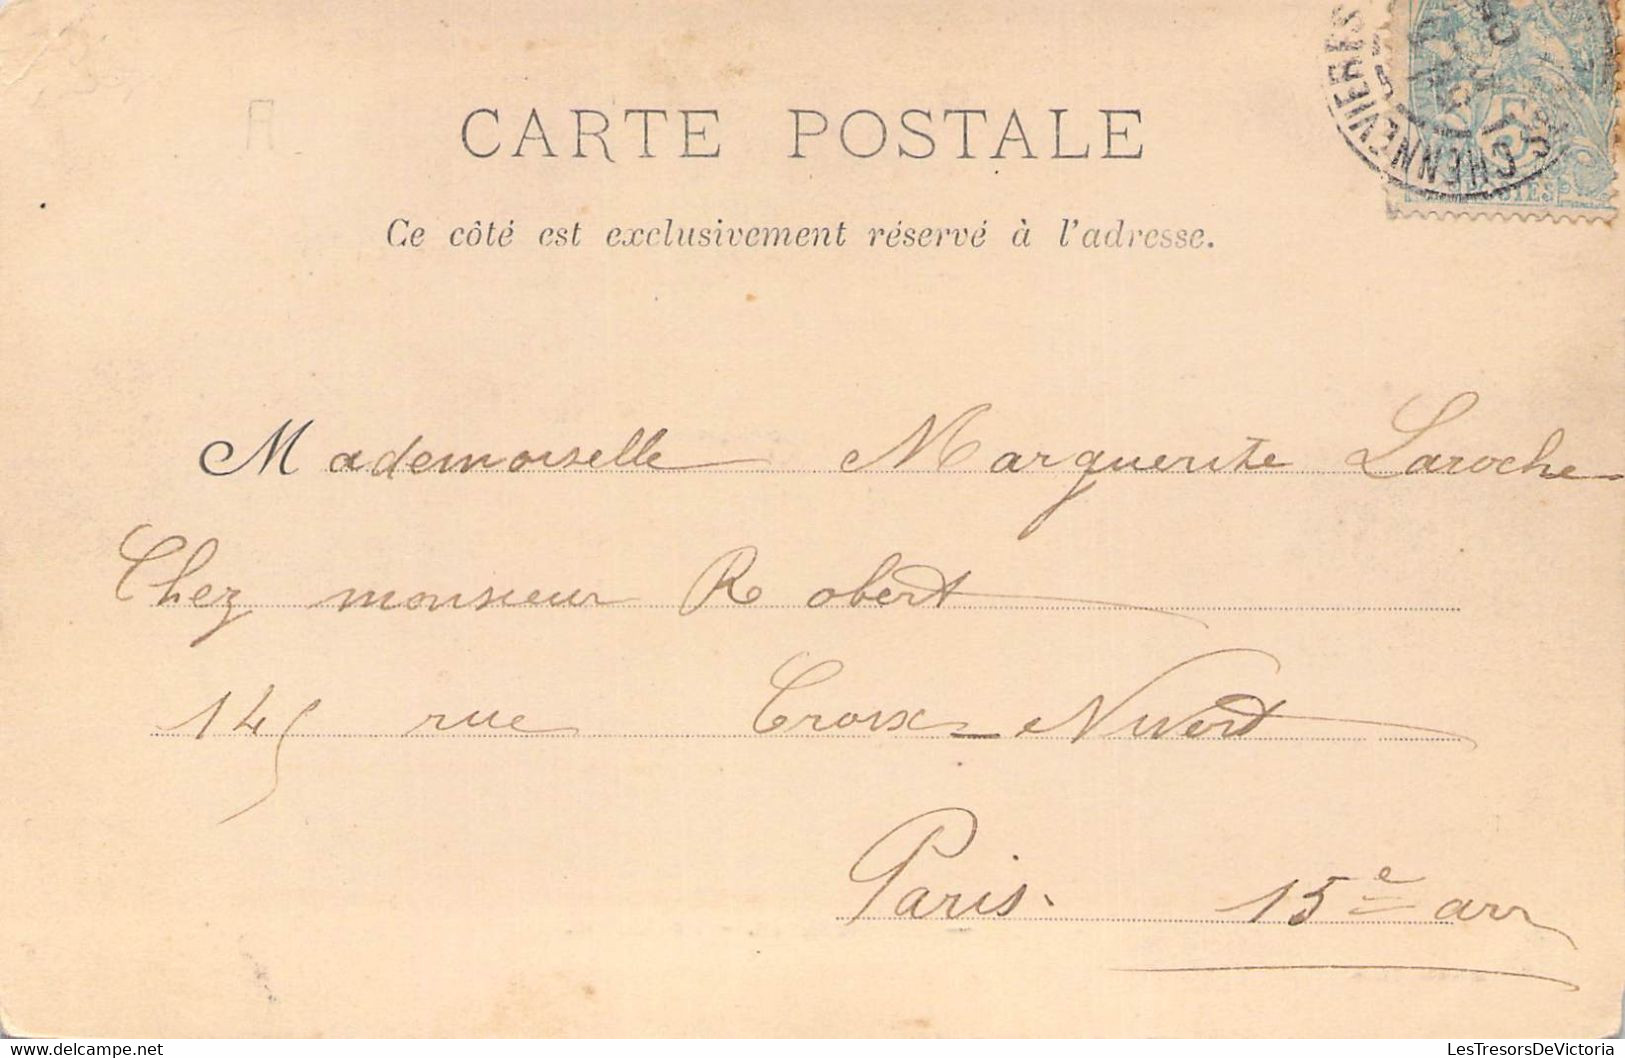 CHENNEVIERES
5
POSTES
CARTE POSTALE
Ce côté est exclusivement réservé à l'adresse.
Mademoiselle Marguerite Laroche
Chez monsieur Robert
145 rue Croix-Nivert
Paris. 15e arr
LesTresorsDeVictoria